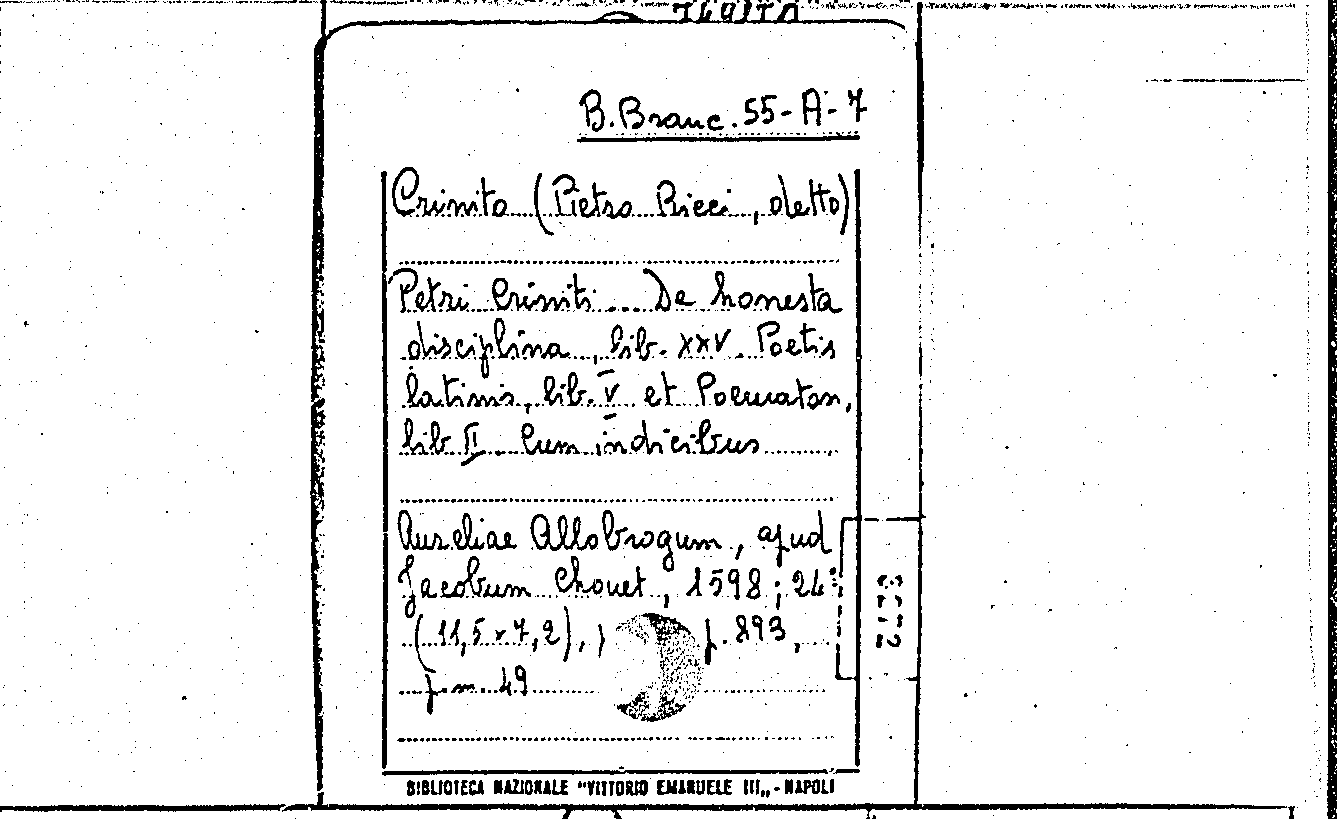 B. Branc. 55-A-7
Crinito (Pietro Ricci, detto)
Petri Criniti... De honesta
disciplina, lib. XXV. Poetis
latinis, lib. V et Poematon,
lib II. Cum indicibus
Aureliae Allobrogum, apud
Jacobum Chouet, 1598; 24°
(11,5 x 7,2), p. 893,
p.m. 49
BIBLIOTECA NAZIONALE "VITTORIO EMANUELE III„ - NAPOLI